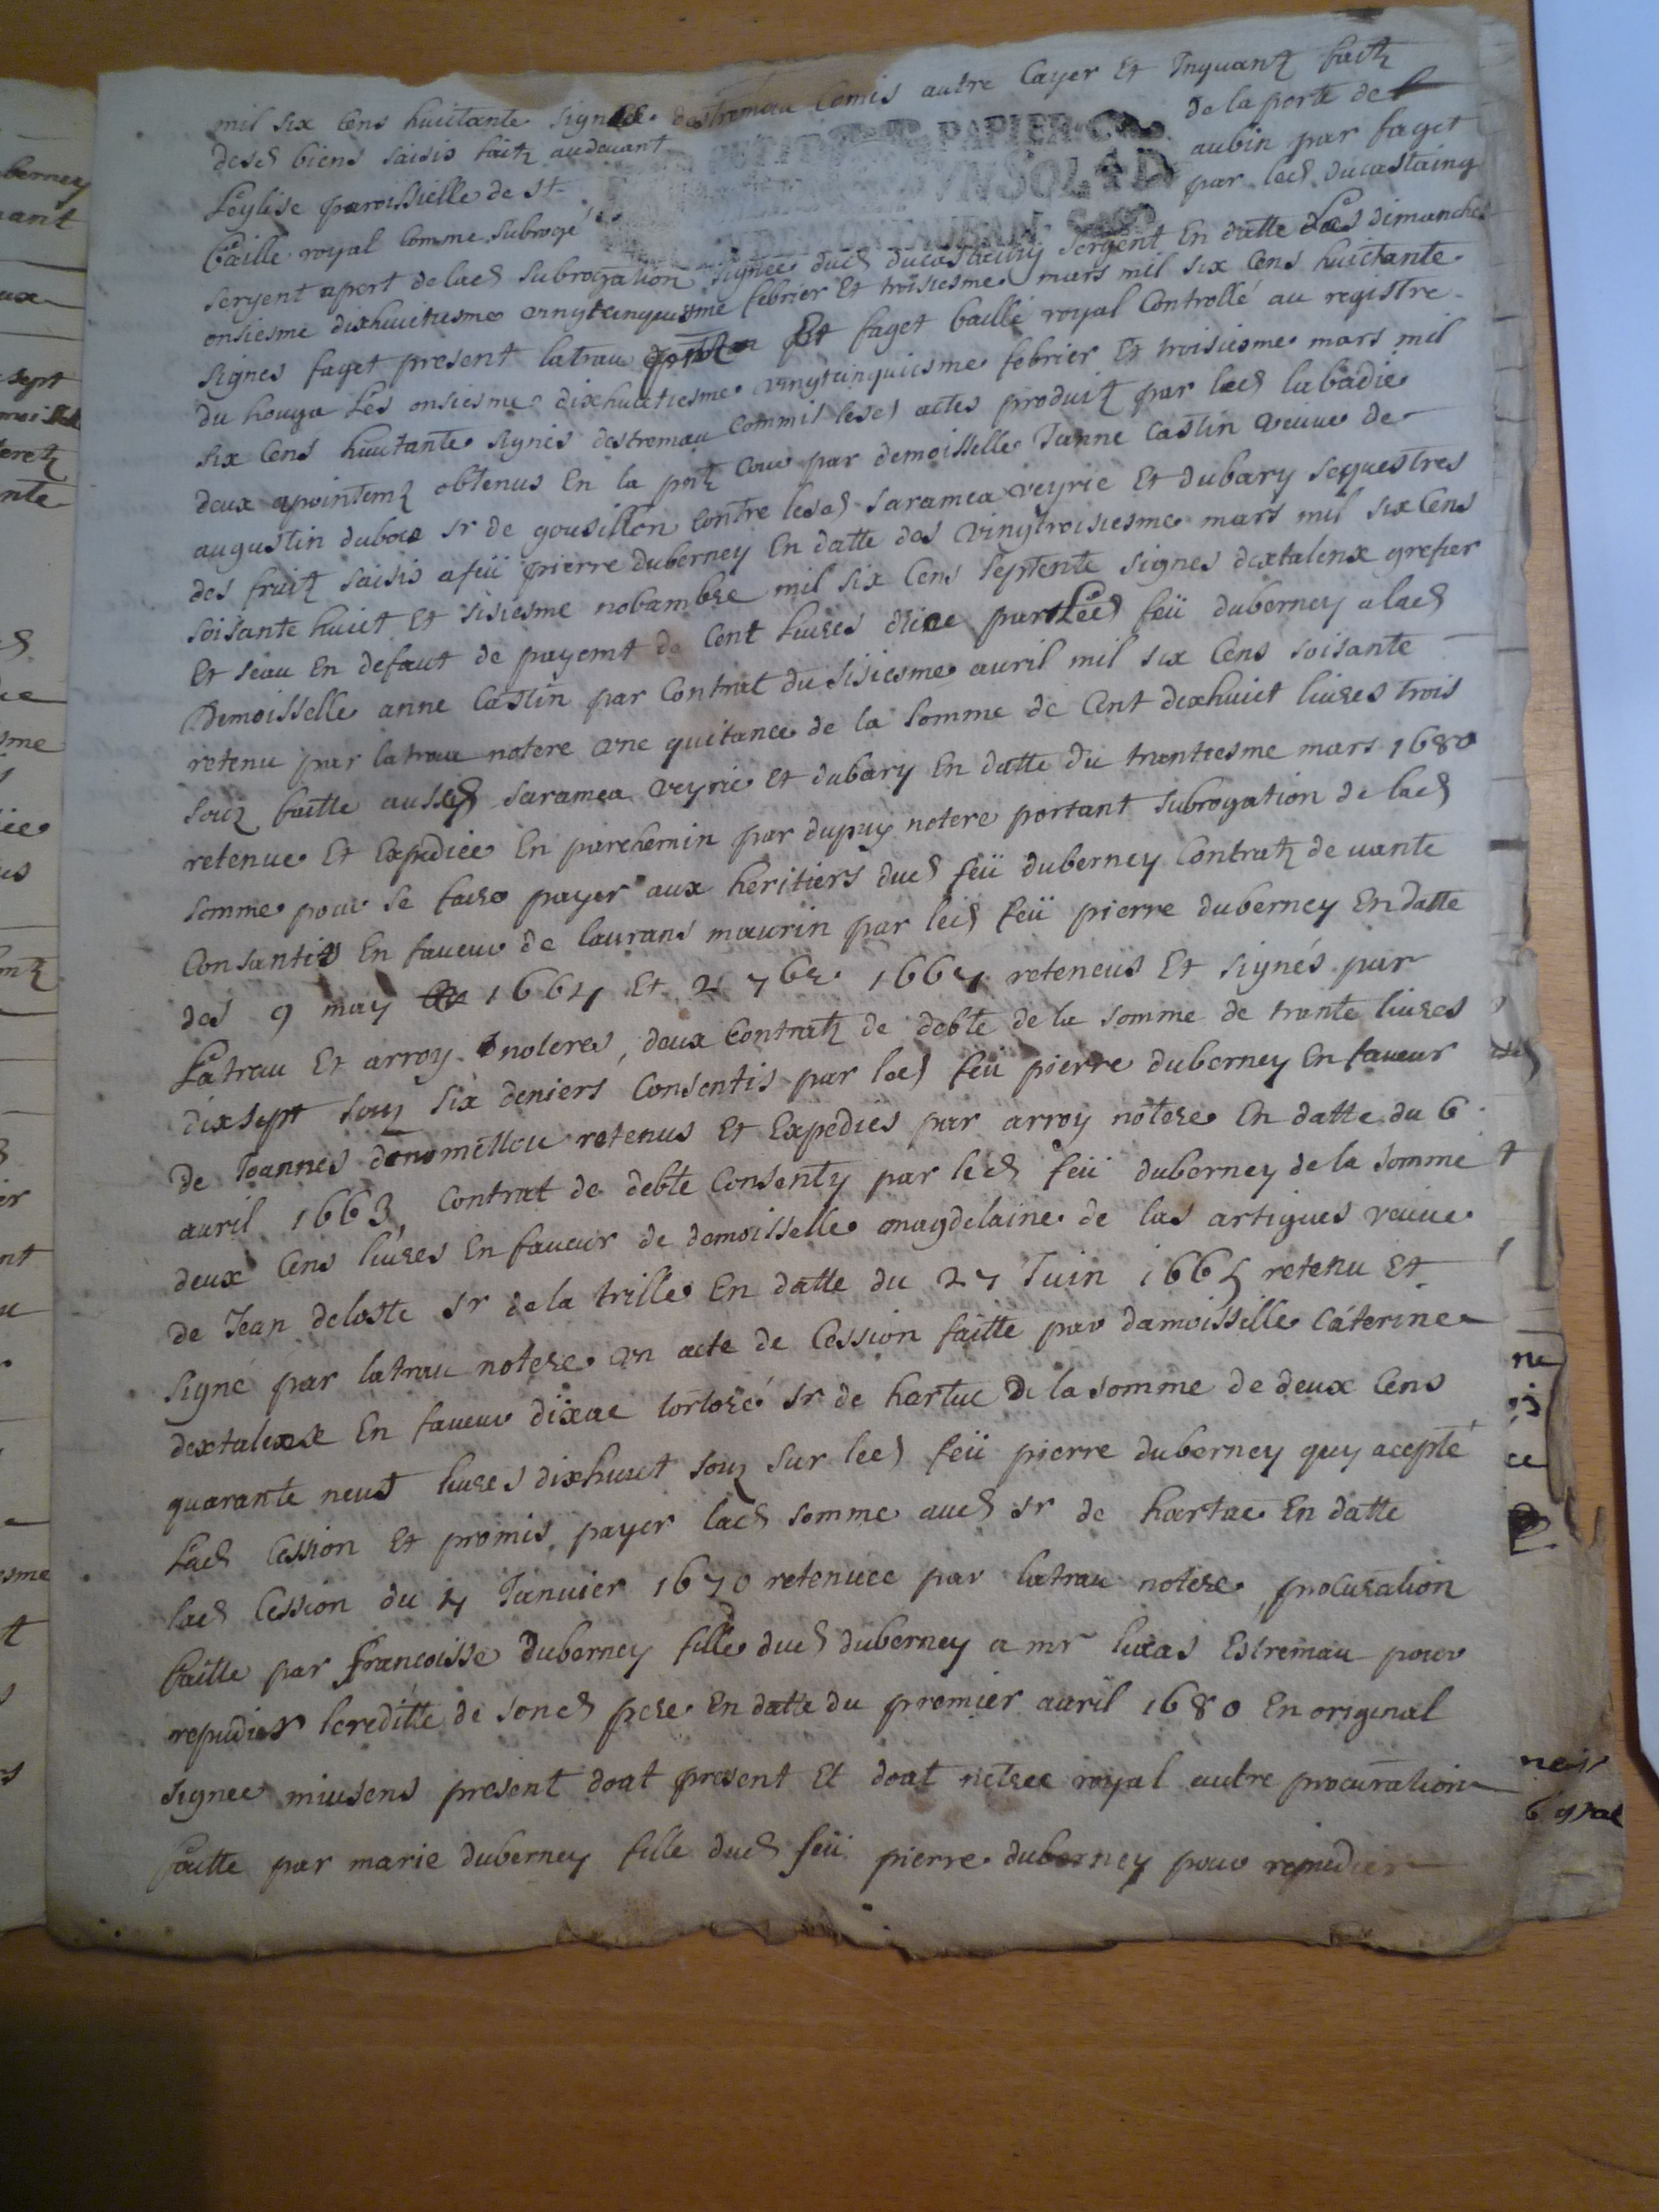 mil six cens huictante signés destremau Comis autre Cayer Et Inquantz faitz
desd biens saisis faitz audevant de la porte de
PETIT PAPIER
VN SOL 4 D
L'eglise paroissielle de st aubin par faget
baille royal Comme subrogé par led ducastaing
sergent apert de lad subrogation signée dud ducastaing sergent En datte des dimanches
onsiesme dixhuictiesme vingtcinquiesme febrier Et troisiesme mars mil six Cens huictante
signes faget present latrau present Et faget baille royal Controllé au registre
du houga Les onsiesme dixhuictiesme vingtcinquiesme febrier Et troisiesme mars mil
six Cens huictante signés destremau Commis lesd actes produitz par led labadie
deux apointemz obtenus En la pntz Cour par demoisselle Janne Castin veuve de
augustin duboe sr de gousillon Contre lesd saramea veyrie Et dubary sequestres
des fruitz saisis a feü pierre duberney En datte des vingtroisiesme mars mil six Cens
soisante huict Et sisiesme nobambre mil six Cens septente signes dextalenx grefier
Et seau En defaut de payemt de Cent livres par Led feü duberney a lad
Demoisselle anne Castin par Contrat du sisiesme auril mil six Cens soisante
retenu par latrau notere vne quitance de la somme de Cent dexhuict liures trois
souz faitte ausd saramea veyrie Et dubary En datte du trantiesme mars 1680
retenue Et Expediée En parchemin par dupuy notere portant subrogation de lad
somme pour se faire payer aux heritiers dud feü duberney Contratz de vante
Consantis En faveur de laurans maurin par led feü pierre duberney En datte
des 9 may 1664 Et 2 7bre 1667 reteneus Et signés par
Latrau Et arroy noteres, deux Contratz de debte de la somme de trante liures
dixsept souz six deniers Consentis par led feü pierre duberney En faveur
de Joannes retenus Et Expediés par arroy notere En datte du 6
auril 1663, Contrat de debte Consenty par led feü duberney de la somme
deux Cens liures En faveur de demoisselle magdelaine de las artigues veuue
de Jean deloste sr de la trille En datte du 27 Juin 1665 retenu Et
signé par latrau notere vn acte de Cession faitte par damoisselle Caterine
dextalenx En faveur dixac tortoré sr de hartuc De la somme de deux Cens
quarante neuf liures dixhuict souz sur led feü pierre duberney quy acepte
Lad Cession Et promis payer lad somme aud sr de hartuc En datte
lad Cession du 4 Januier 1670 retenuee par latrau notere, procuration
faitte par françoisse duberney fille dud duberney a mr lucas Estremau pour
repudier lereditte de sond pere En datte du premier auril 1680 En original
signee miusens present doat present Et doat notere royal autre procuration
faitte par marie duberney fille dud feü pierre duberney pour repudier